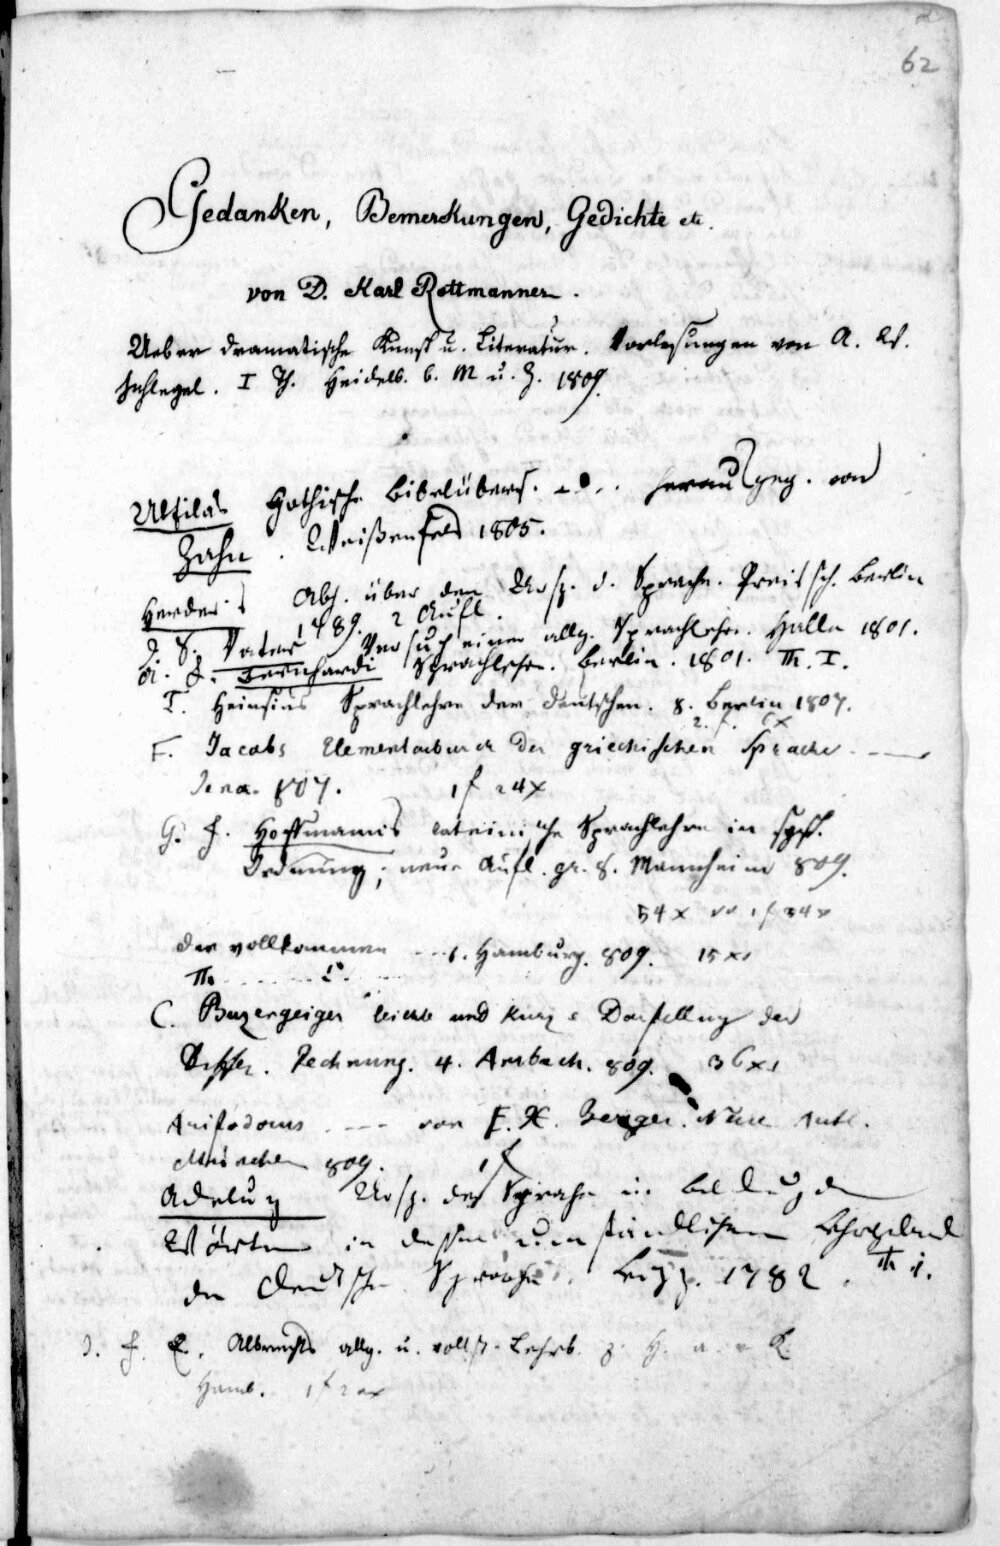 62
Gedanken, Bemerkungen, Gedichte etc.
von D. Karl Rottmanner.
Ueber dramatische Kunst u. Literatur. Vorlesungen von A. W.
Schlegel. I Th. Heidelb. b. M u. Z. 1809.
Ulfilas Gothische Bibelübers. herausgeg. von
Zahn. Weißenfels 1805.
Herder's Abh. über den Ursp. d. Sprache. Preissch. Berlin
1789. 2 Aufl.
J. S. Vaters Versuch einer allg. Sprachlehre. Halle 1801.
A. F. Bernhardi Sprachlehre. Berlin. 1801. Th. I.
T. Heinsius Sprachlehre der Deutschen. 8. Berlin 1807.
2. f. 6x
F. Jacobs Elementarbuch der griechischen Sprache
Jena. 807. 1 f 24x
G. F. Hoffmanns lateinische Sprachlehre in syst.
Ordnung; neue Aufl. gr. 8. Mannheim 809.
54x 1 f 34x
der vollkommen Hamburg. 809. 15 x
Th.
C. Buzengeiger leichte und kurze Darstellung der
Differ. Rechnung. 4. Ansbach. 809. 36x
Aristodemus von F. X. Berger. Neue Aufl.
München 809. 1 f
Adelung Ursp. der Sprache u.
Wörter in dessen umständlichem Lehrgebäud
der Deutschen Sprache. Leipz. 1782. Th i.
J. F. E. Albrechts allg. u. vollst. Lehrb. z. H.
Hamb. 1 f